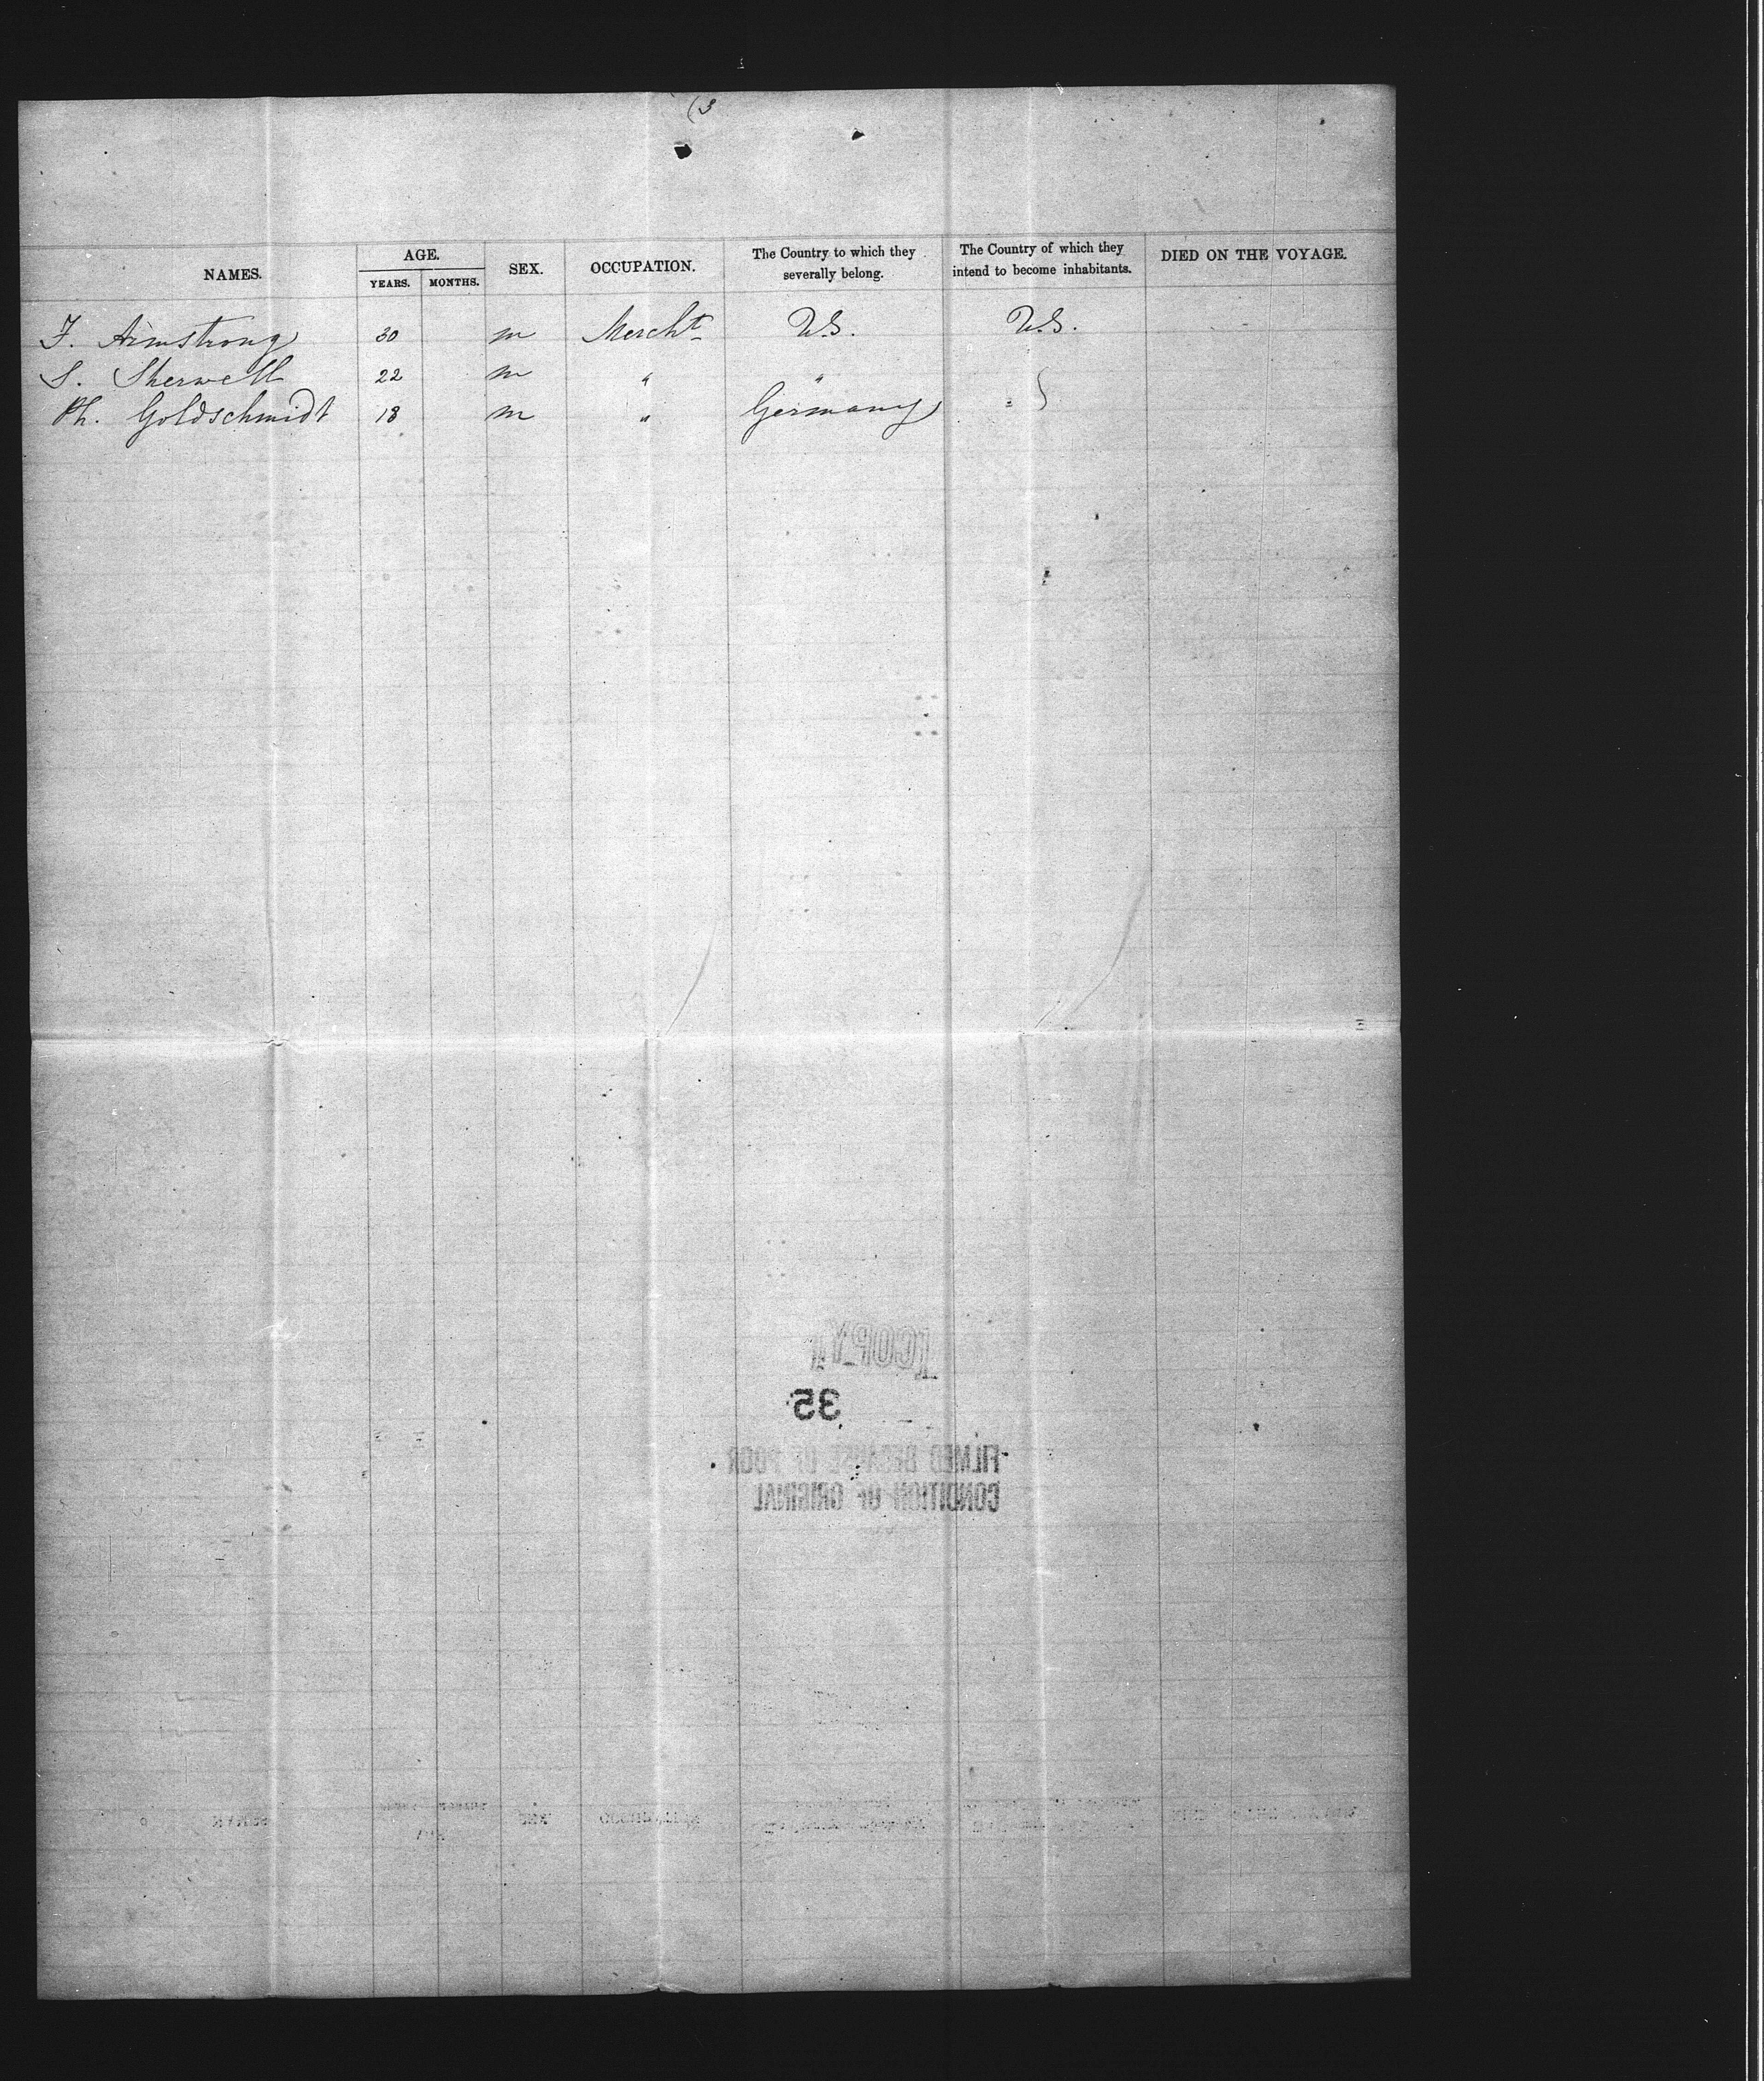 (3
NAMES. AGE. YEARS. MONTHS. SEX. OCCUPATION. The Country to which they severally belong. The Country of which they intend to become inhabitants. DIED ON THE VOYAGE.
F. Armstrong 30 m Mercht U.S. U.S.
S. Sherwell 22 m " "
Ph. Goldschmidt 18 m " Germany "
COPY
35
FILMED BECAUSE OF POOR
CONDITION OF ORIGINAL